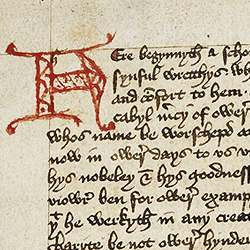 Here begynnyth a sch
synful wrecchys wh
and cōfort to hem
cabyl m̄cy of ower
whos name be worschepd
now in ower days to us v
hys nobeley & hys goodness
viowr ben for ower examp
þt he werkyth in any creat
charyte be not ower hynd